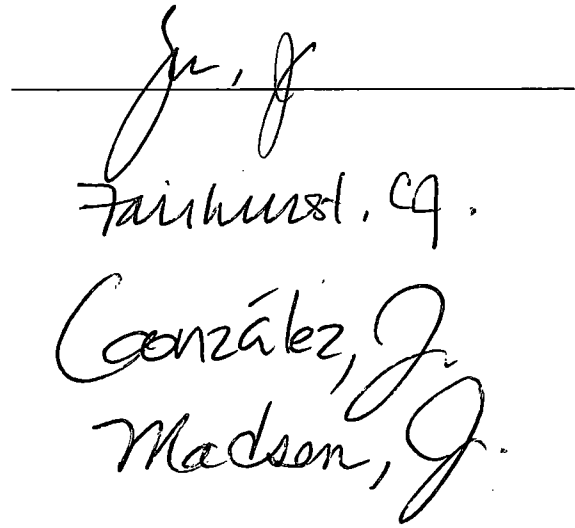 Yu, J
Fairhurst, CJ.
González, J.
Madsen, J.